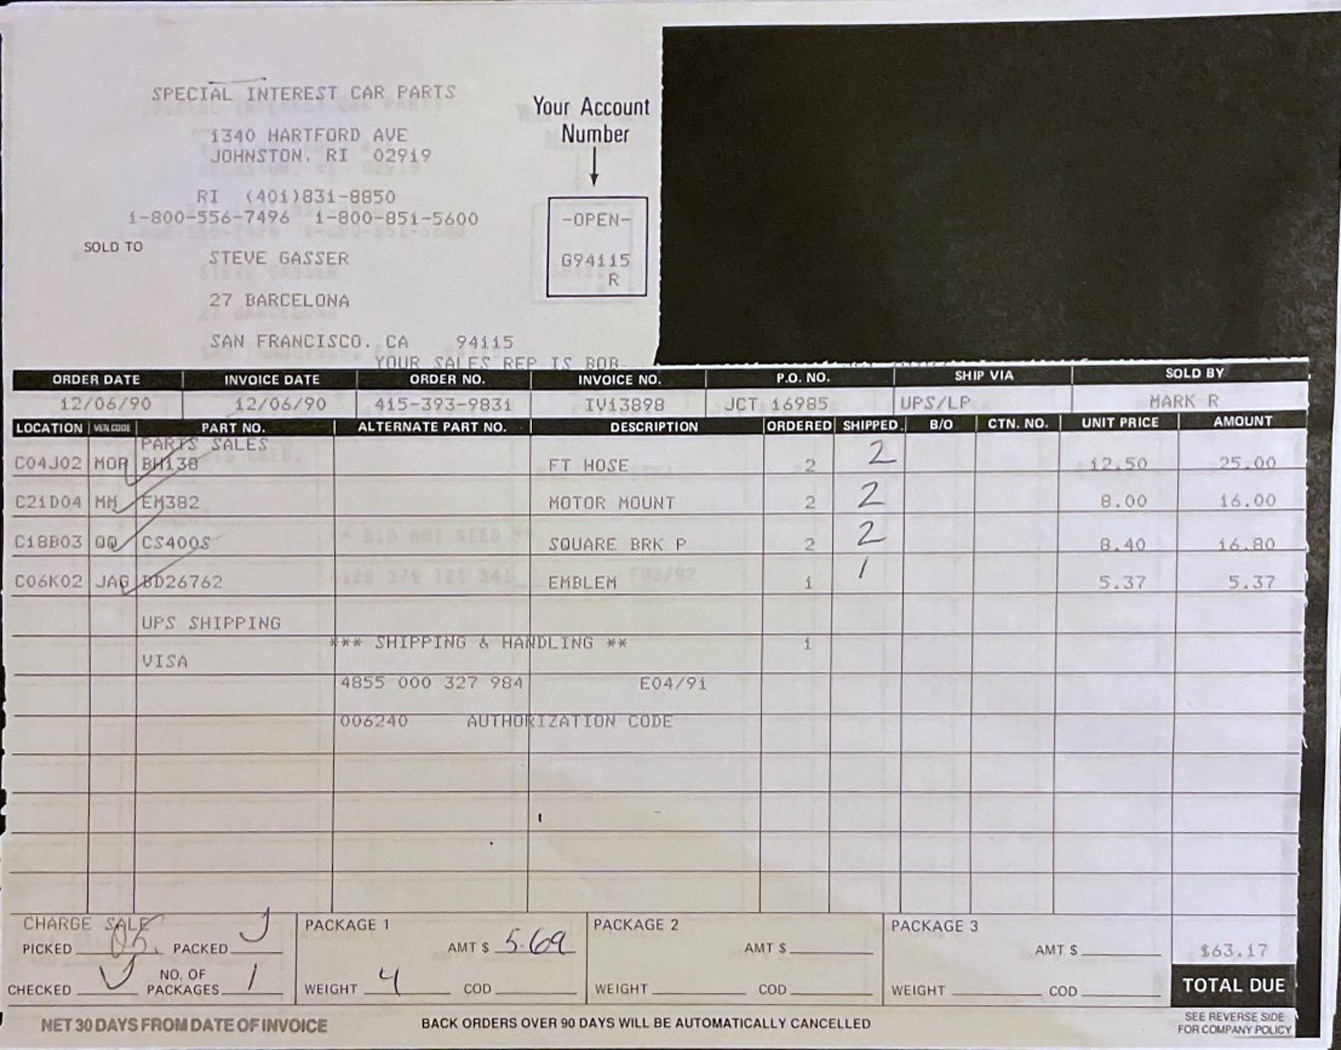 SPECIAL INTEREST CAR PARTS
1340 HARTFORD AVE
JOHNSTON, RI 02919
RI (401)831-8850
1-800-556-7496 1-800-851-5600
Your Account
Number
-OPEN-
G94115
R
SOLD TO
STEVE GASSER
27 BARCELONA
SAN FRANCISCO, CA 94115
YOUR SALES REP IS BOB
ORDER DATE INVOICE DATE ORDER NO. INVOICE NO. P.O. NO. SHIP VIA SOLD BY
12/06/90 12/06/90 415-393-9831 IV13898 JCT 16985 UPS/LP MARK R
LOCATION VEN.CODE PART NO. ALTERNATE PART NO. DESCRIPTION ORDERED SHIPPED B/O CTN. NO. UNIT PRICE AMOUNT
PARTS SALES
C04J02 MOR BH138 FT HOSE 2 2 12.50 25.00
C21D04 MM EM382 MOTOR MOUNT 2 2 8.00 16.00
C18B03 QQ CS400S SQUARE BRK P 2 2 8.40 16.80
C06K02 JAG BD26762 EMBLEM 1 1 5.37 5.37
UPS SHIPPING
*** SHIPPING & HANDLING ** 1
VISA
4855 000 327 984 E04/91
006240 AUTHORIZATION CODE
CHARGE SALE
PICKED PACKED
CHECKED NO. OF PACKAGES 1
PACKAGE 1
AMT $ 5.69
WEIGHT 4 COD
PACKAGE 2
AMT $
WEIGHT COD
PACKAGE 3
AMT $
WEIGHT COD
$63.17
TOTAL DUE
NET 30 DAYS FROM DATE OF INVOICE BACK ORDERS OVER 90 DAYS WILL BE AUTOMATICALLY CANCELLED
SEE REVERSE SIDE
FOR COMPANY POLICY